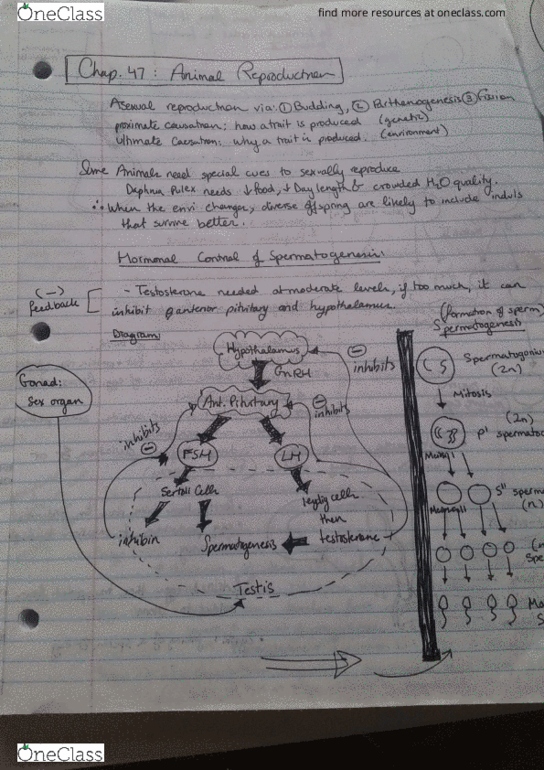 OneClass
find more resources at oneclass.com
Chap. 47: Animal Reproduction
Asexual reproduction via: ① Budding, ② Parthenogenesis ③ Fission
proximate causation: how a trait is produced (genetic)
Ultimate Causation: why a trait is produced. (environment)
Some Animals need special cues to sexually reproduce
Daphnia Pulex needs ↓food, ↓Day length & crowded H₂O quality.
∴ When the envi changes, diverse offspring are likely to include induls
that survive better.
Hormonal Control of Spermatogenesis
(-)
feedback
- Testosterone needed at moderate levels, if too much, it can
inhibit anterior pituitary and hypothalamus.
Diagram:
Gonad:
Sex organ
Hypothalamus
GnRH
inhibits
Ant. Pituitary
inhibits
inhibits
FSH
LH
Sertoli Cells
leydig cells
then
testosterone
inhibin
Spermatogenesis
Testis
(formation of sperm)
Spermatogenesis
Spermatogoniu
(2n)
Mitosis
(2n)
p' spermatoc
Meiosis I
S" sperma
(n)
Meiosis II
(n
Spe
Ma
S
OneClass